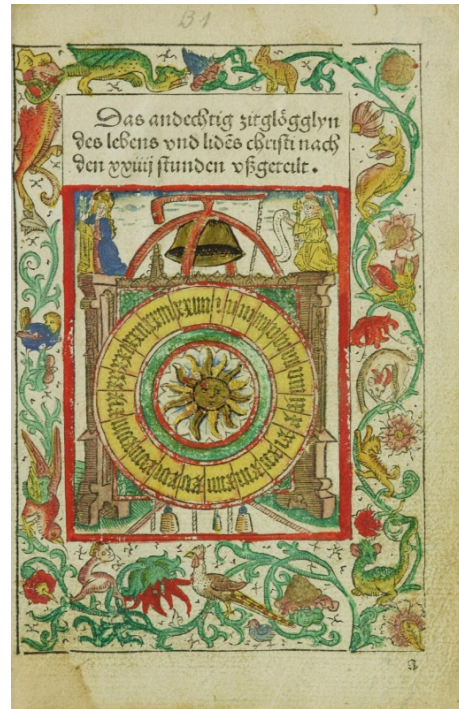 B1
Das andechtig zitglögglyn
des lebens vnd lidēs christi nach
den xxiiij stunden vßgeteilt .
a